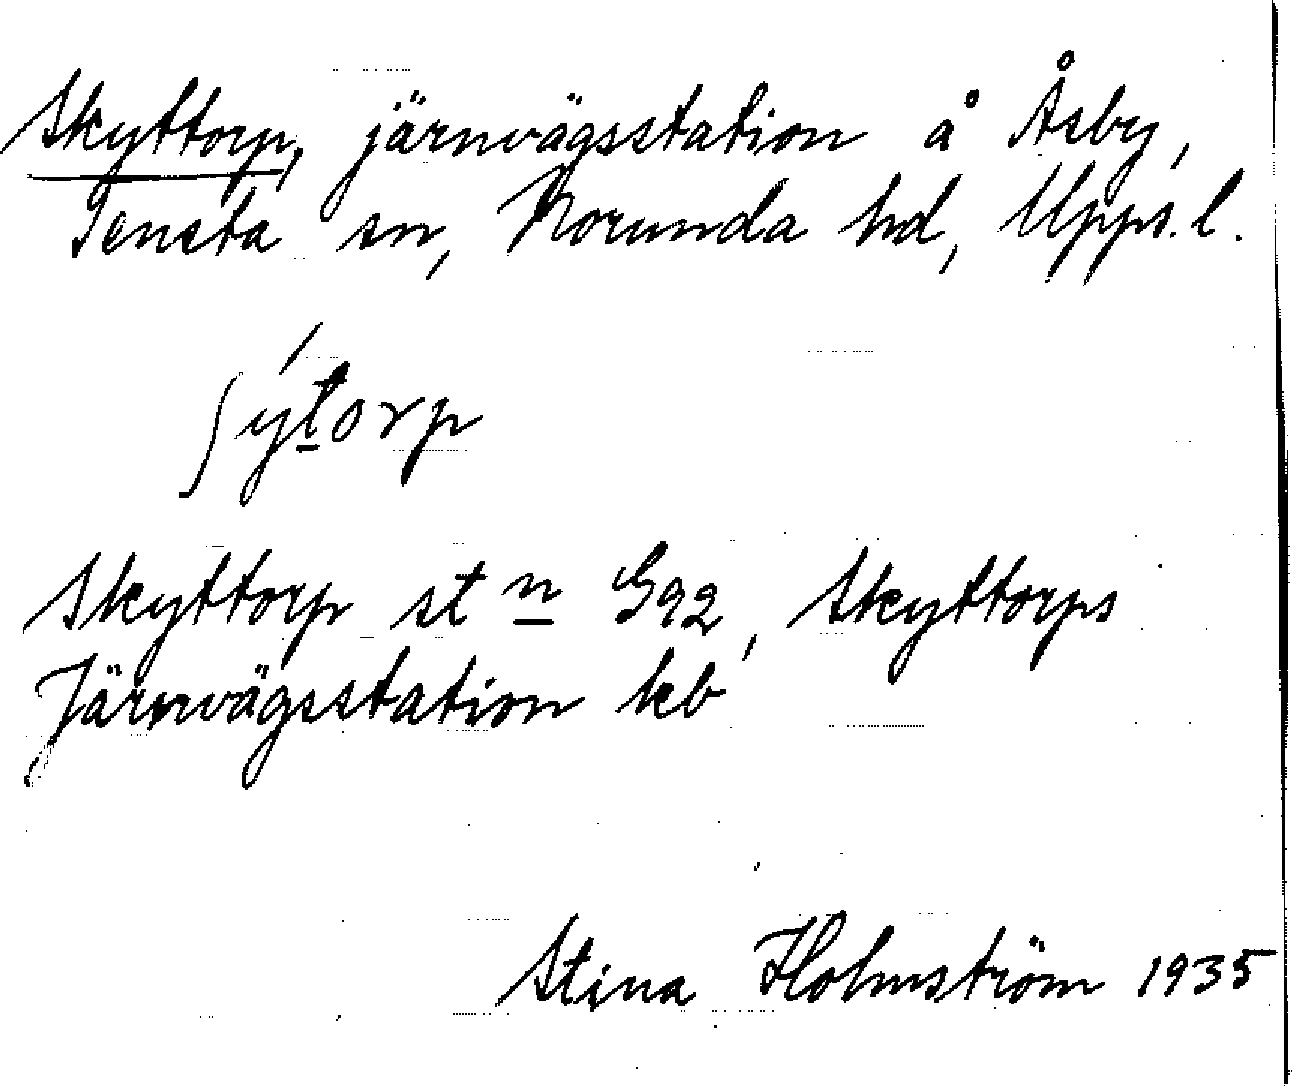 Skyttorp, järnvägsstation å Åsby,
Tensta sn, Norunda hd, Upps. l.
ʃýtorp
Skyttorp st n G92, Skyttorps
Järnvägsstation kb
Stina Holmström 1935